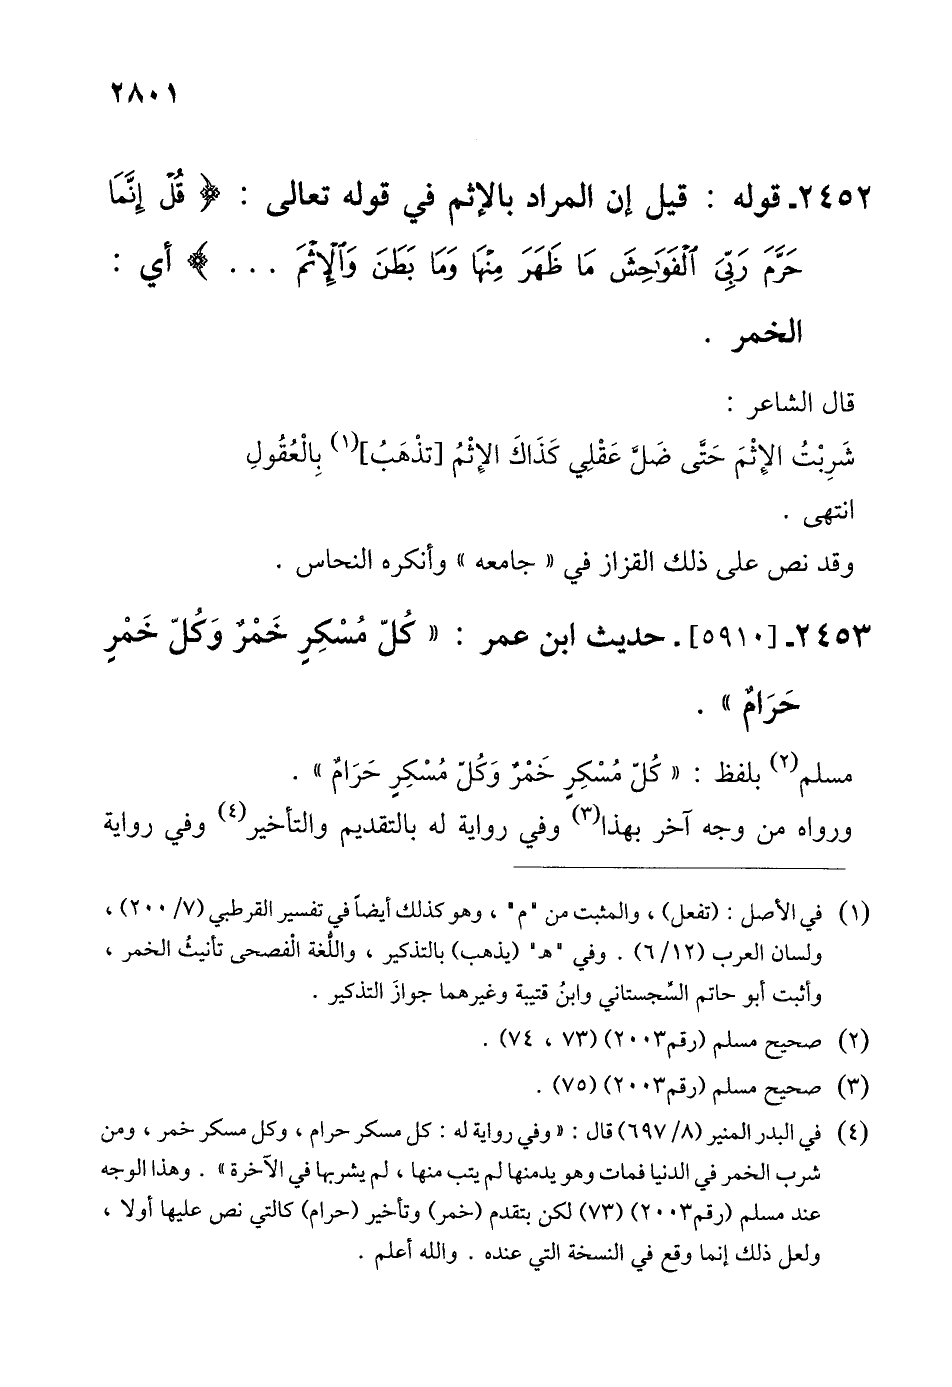 ٢٨٠١
٢٤٥٢ـ قوله : قيل إن المراد بالإثم في قوله تعالى : ﴿ قُلْ إِنَّمَا
حَرَّمَ رَبِّيَ ٱلْفَوَٰحِشَ مَا ظَهَرَ مِنْهَا وَمَا بَطَنَ وَٱلْإِثْمَ ... ﴾ أي :
الخمر .
قال الشاعر :
شَرِبْتُ الإِثْمَ حَتَّى ضَلَّ عَقْلِي كَذَاكَ الإِثْمُ [تذْهَبُ](١) بِالْعُقُولِ
انتهى .
وقد نص على ذلك القزاز في « جامعه » وأنكره النحاس .
٢٤٥٣ـ [٥٩١٠]. حديث ابن عمر : « كُلّ مُسْكِرٍ خَمْرٌ وَكُلّ خَمْرٍ
حَرَامٌ » .
مسلم(٢) بلفظ : « كُلّ مُسْكِرٍ خَمْرٌ وَكُلّ مُسْكِرٍ حَرَامٌ » .
ورواه من وجه آخر بهذا(٣) وفي رواية له بالتقديم والتأخير(٤) وفي رواية
(١) في الأصل : (تفعل) ، والمثبت من "م" ، وهو كذلك أيضاً في تفسير القرطبي (٧/ ٢٠٠) ،
ولسان العرب (١٢/ ٦) . وفي "هـ" (يذهب) بالتذكير ، واللُّغة الْفصحى تأنيثُ الخمر ،
وأثبت أبو حاتم السِّجستاني وابنُ قتيبة وغيرهما جوازَ التذكير .
(٢) صحيح مسلم (رقم٢٠٠٣) (٧٣ ، ٧٤) .
(٣) صحيح مسلم (رقم٢٠٠٣) (٧٥) .
(٤) في البدر المنير (٨/ ٦٩٧) قال : « وفي رواية له : كل مسكر حرام ، وكل مسكر خمر ، ومن
شرب الخمر في الدنيا فمات وهو يدمنها لم يتب منها ، لم يشربها في الآخرة » . وهذا الوجه
عند مسلم (رقم٢٠٠٣) (٧٣) لكن بتقدم (خمر) وتأخير (حرام) كالتي نص عليها أولا ،
ولعل ذلك إنما وقع في النسخة التي عنده . والله أعلم .